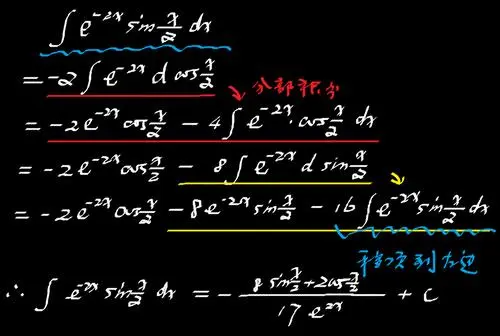 ∫ e^{-2x} sin x/2 dx
= -2 ∫ e^{-2x} d cos x/2
分部积分
= -2e^{-2x} cos x/2 - 4∫ e^{-2x} · cos x/2 dx
= -2e^{-2x} cos x/2 - 8∫ e^{-2x} d sin x/2
= -2e^{-2x} cos x/2 - 8e^{-2x} sin x/2 - 16∫ e^{-2x} sin x/2 dx
移项到左边
∴ ∫ e^{-2x} sin x/2 dx = - (8 sin x/2 + 2cos x/2)/(17 e^{2x}) + C